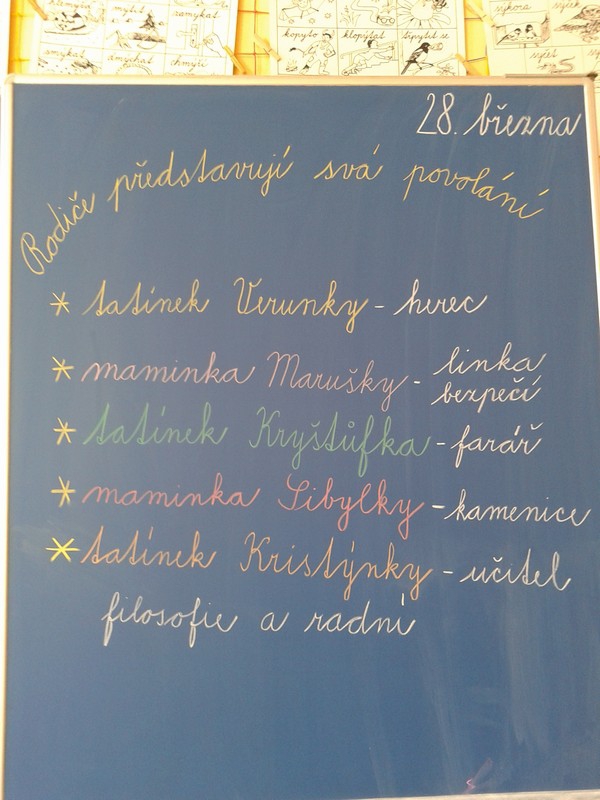 mýtit
zamykat
smýkat
chmýří
kopyto
klopýtat
třpytit se
sýkora
sýček
sýpat
28. března
Rodiče představují svá povolání
* tatínek Verunky - herec
* maminka Marušky - linka
bezpečí
* tatínek Kryštůfka - farář
* maminka Sibylky - kamenice
* tatínek Kristýnky - učitel
filosofie a radní